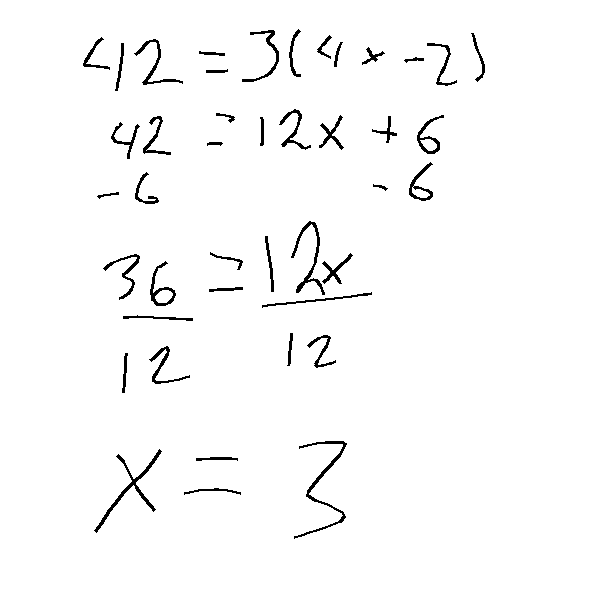 42 = 3(4x -2)
42 = 12x + 6
-6 -6
36 = 12x
12 12
x = 3